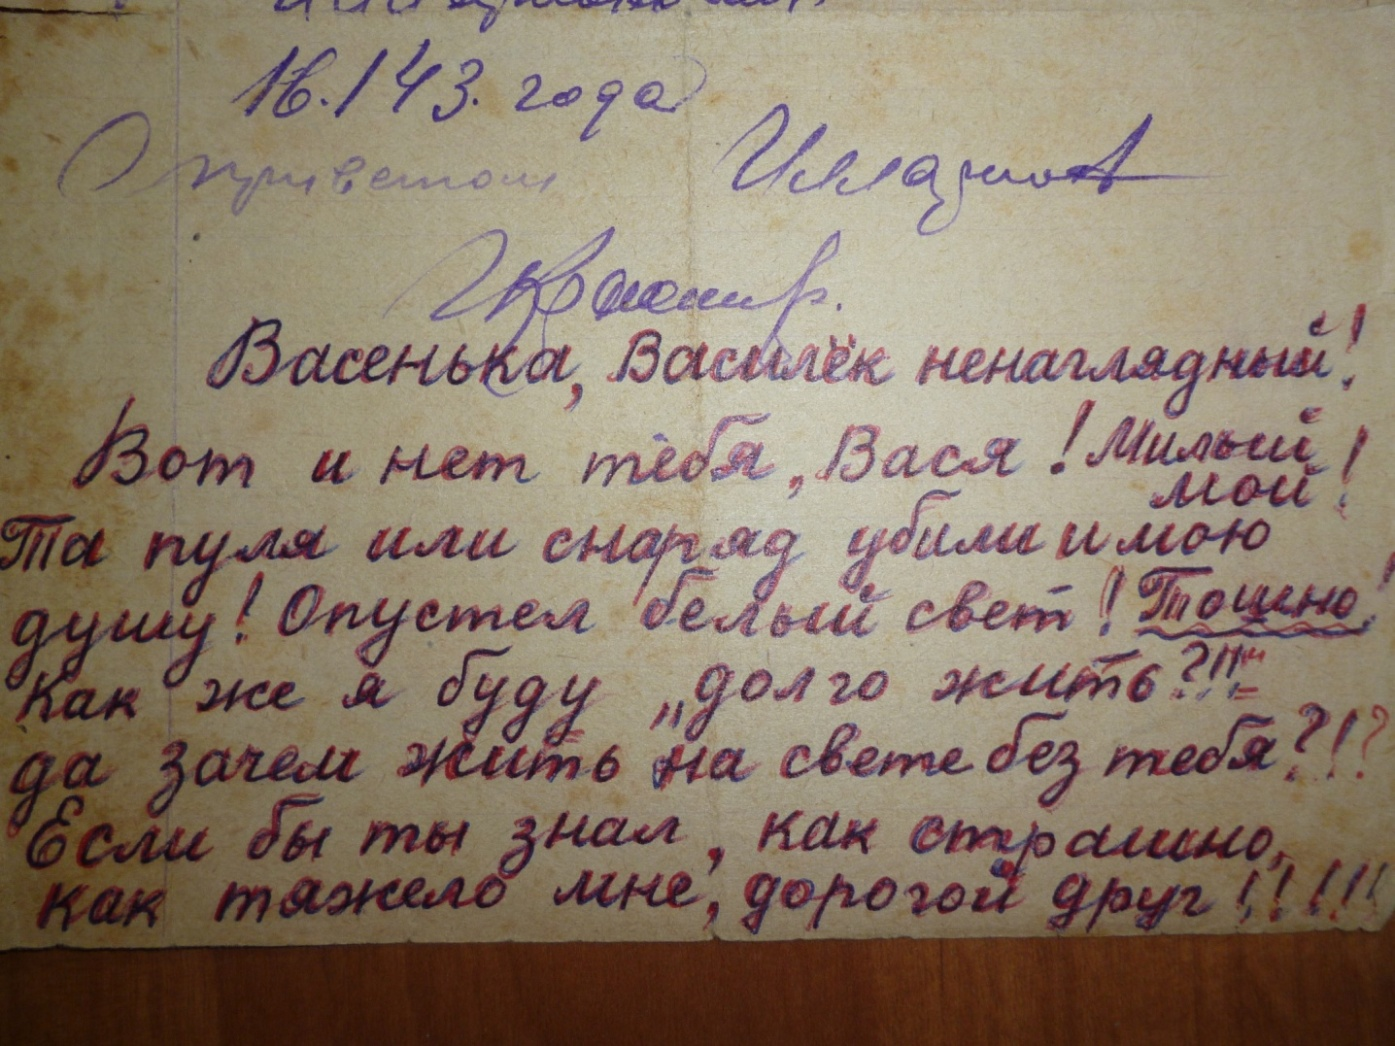 16.1 43. года
С приветом
Васенька, Василёк ненаглядный!
Вот и нет тебя, Вася! Милый
мой!
Та пуля или снаряд убили и мою
душу! Опустел белый свет! Тошно!
Как же я буду „долго жить?!!"
да зачем жить на свете без тебя?!?
Если бы ты знал, как страшно,
как тяжело мне, дорогой друг!!!!!